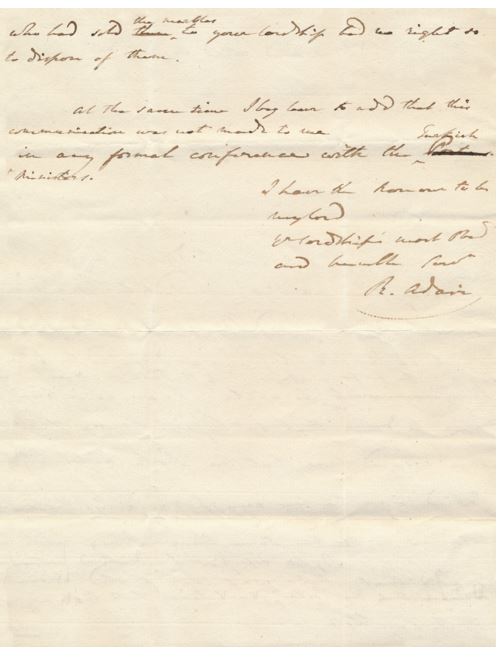 the marbles
who had sold them to your Lordship had no right so
to dispose of them.
At the same time I beg leave to add that this
communication was not made to me
Turkish
in any formal conference with the Porte
Ministers.
I have the honour to be
my Lord
yr Lordship's most Obed
and humble Servt
R. Adair